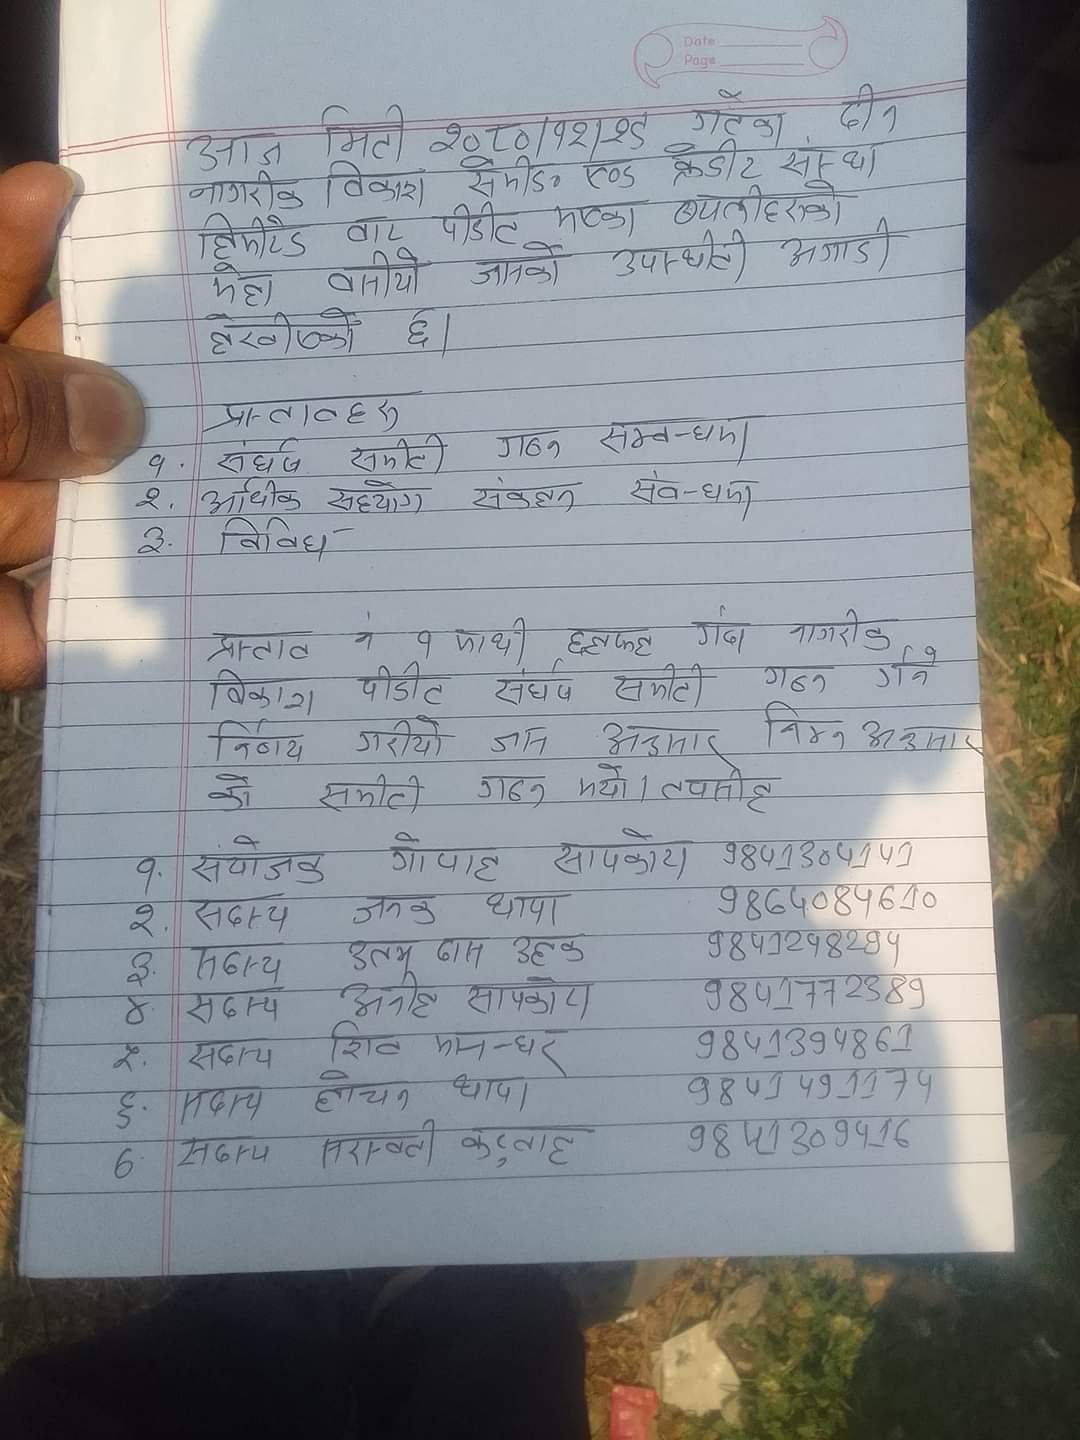 Date
Page
आज मिती २०८०/१२/२५ गतेका दीन
नागरीक विकाश सेभीङ एण्ड क्रेडीट संस्था
लिमीटेड बाट पीडीत भएका व्यक्तीहरुको
भेला वसीयो जसको उपस्थीती अगाडी
लेखीएको छ।
प्रस्तावहरु
१. संघर्ष समीती गठन सम्बन्धमा
२. आर्थीक सहयोग संकलन संवन्धमा
३. विविध
प्रस्ताव नं १ माथी छलफल गर्दा नागरीक
विकाश पीडीत संघर्ष समीती गठन गर्ने
निर्णय गरीयो जस अनुसार निम्न अनुसार
को समीती गठन भयो। तपसील
१. संयोजक गोपाल सापकोटा 9841304141
२. सदस्य जनक थापा 9864084610
३. सदस्य उत्तम दास 9841248294
४. सदस्य अनील सापकोटा 9841772389
५. सदस्य शिव मानन्धर 9841394861
६. सदस्य लोचन थापा 9841491174
७. सदस्य सरस्वती कटुवाल 9841309416